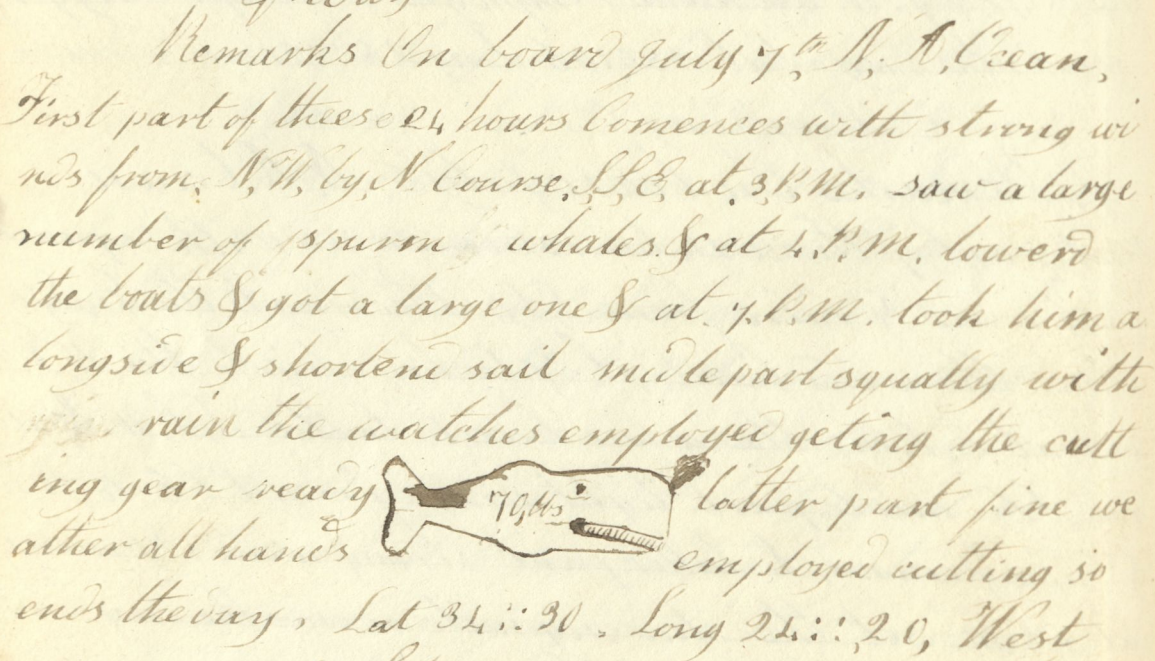 Remarks On board July 7,th N, A, Ocean,
First part of theese 24 hours Comences with strong wi
nds from, N,W, by, N Course, S,S,E, at, 3, P,M, saw a large
number of spurm whales & at 4, P, M, lowerd
the boats & got a large one & at, 7, P, M, took him a
longside & shortend sail midle part squally with
rain the watches employed geting the cutt
ing gear ready latter part fine we
70, bbs
ather all hands employed cutting so
ends the day, Lat 34::30, Long 24::20, West